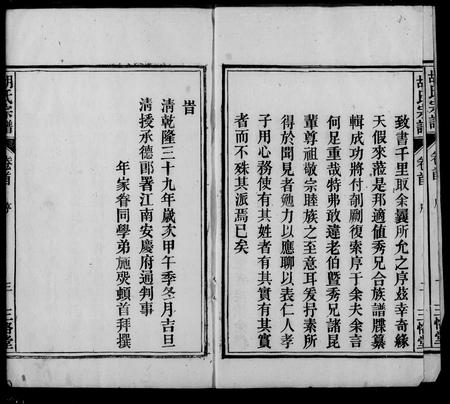 胡氏宗譜
卷首
序
三悟堂
致書千里取余曩所允之序茲幸奇緣
天假來涖是邦適値秀兄合族譜牒纂
輯成功將付剞劂復索序于余夫余言
何足重哉特弗敢違老伯曁秀兄諸昆
輩尊祖敬宗睦族之至意耳爰抒素所
得於聞見者勉力以應聊以表仁人孝
子用心務使有其姓者有其實有其實
者而不殊其派焉已矣
旹
淸乾隆三十九年歲次甲午季冬月吉旦
淸授承德郞署江南安慶府通判事
年家眷同學弟施燮頓首拜撰
胡氏宗譜
卷首
序
三
三悟堂